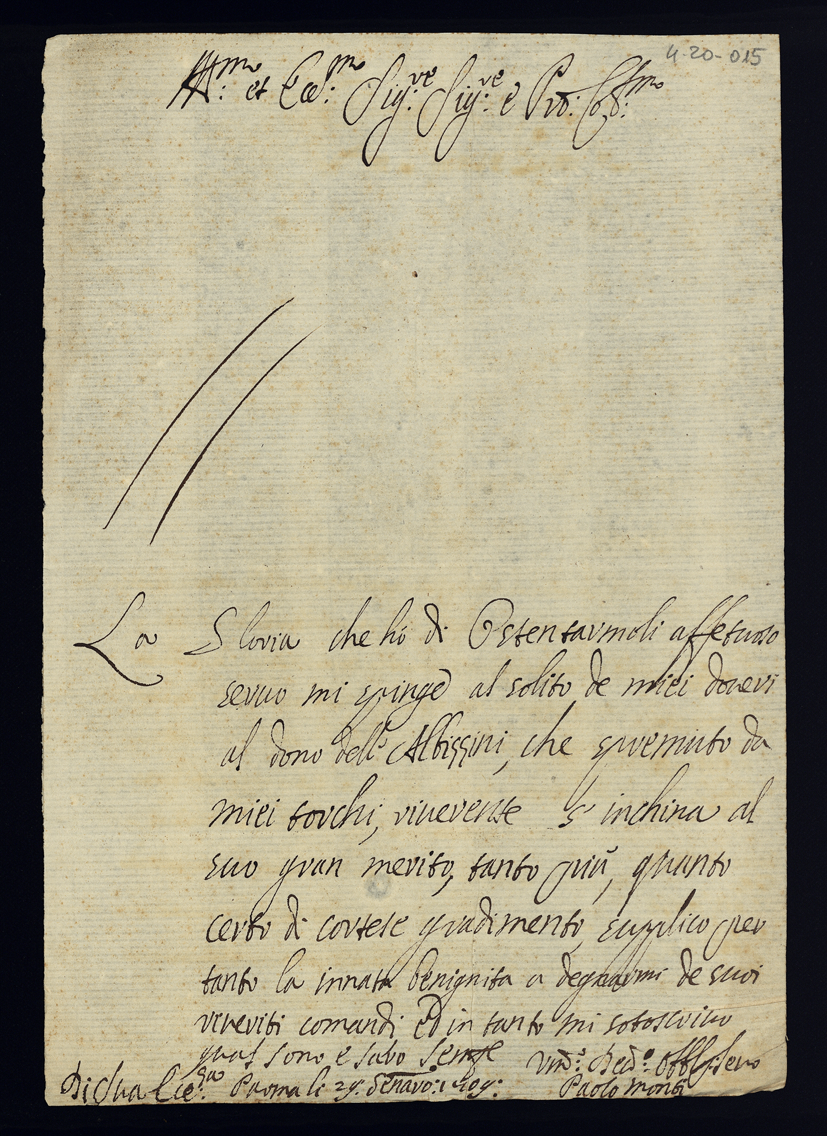 4-20-015
Ill.mo et Ecc.mo Sig.re Sig.re e Pro: Col.mo
La Gloria che hò di Ostentarmeli affetuoso
servo mi spinge al solito de miei doveri
al dono dell' Altissini, che spremuto da
miei torchi, riverente s' inchina al
suo gran merito, tanto più, quanto
certo di cortese gradimento, supplico per
tanto la innata benignita a degnarmi de suoi
riveriti comandi ed in tanto mi sotoscrivo
qual sono e sarò sempre
Di Sua Ecc.za Parma li 29. Genaro: Um.o Ded.o Obbl: Servo
Paolo Monti